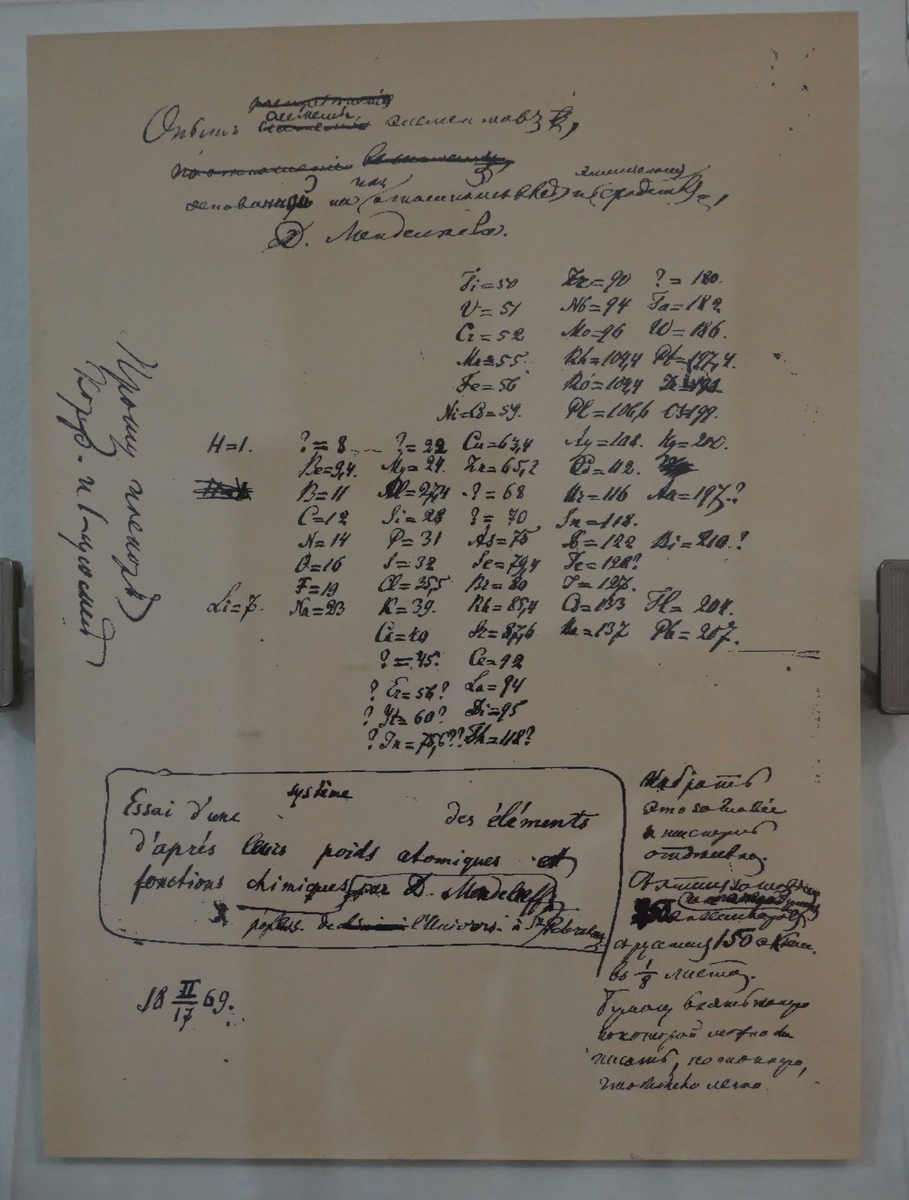 Опытъ системы элементовъ,
основанной на ихъ атомномъ вѣсѣ и химическомъ сходствѣ,
Д. Менделѣева.
Ti=50 Zr=90 ?=180.
V=51 Nb=94 Ta=182
Cr=52 Mo=96 W=186.
Mn=55 Rh=104,4 Pt=197,4
Fe=56 Ru=104,4
Ni=Co=59. Pl=106,6 Os=199.
H=1. ?=8 ?=22 Cu=63,4 Ag=108. Hg=200.
Be=9,4. Mg=24. Zn=65,2 Cd=112.
B=11 Al=27,4 ?=68 Ur=116 Au=197.?
C=12 Si=28 ?=70 Sn=118.
N=14 P=31 As=75 Sb=122 Bi=210.?
O=16 S=32 Se=79,4 Te=128?
F=19 Cl=35,5 Br=80 J=127.
Li=7. Na=23 K=39. Rb=85,4 Cs=133 Tl=204.
Ca=40 Sr=87,6 Ba=137 Pb=207.
?=45. Ce=92
? Er=56? La=94
? Yt=60? Di=95
? In=75,6?? Th=118?
Прошу
Essai d'une système des éléments
d'après leurs poids atomiques et
fonctions chimiques par D. Mendeleeff
profess. de l'Univers. à St. Petersbourg
18 II/17 69.
Набрать
это
150
въ 1/8 листа.
Бумагу взять
на которой можно бы
писать,